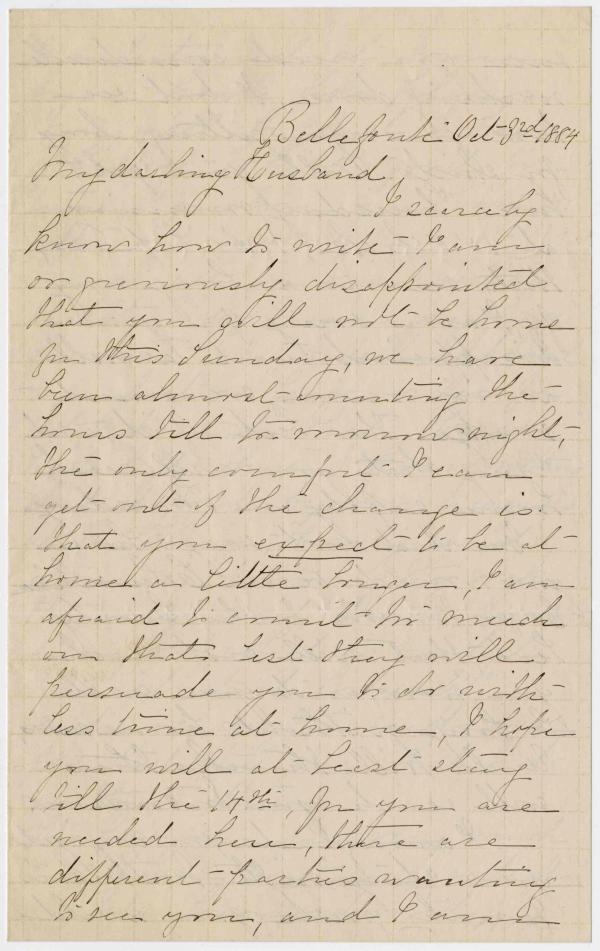 Bellefonte Oct 3rd 1884
My darling Husband,
I scarcely
know how to write I am
so grieviously disappointed
that you will not be home
for this Sunday, we have
been almost counting the
hours till to-morrow night,
the only comfort I can
get out of the change is
that you expect to be at
home a little longer, I am
afraid to count too much
on that lest they will
persuade you to do with
less time at home, I hope
you will at least stay
till the 14th, for you are
needed here, there are
different parties wanting
to see you, and I am